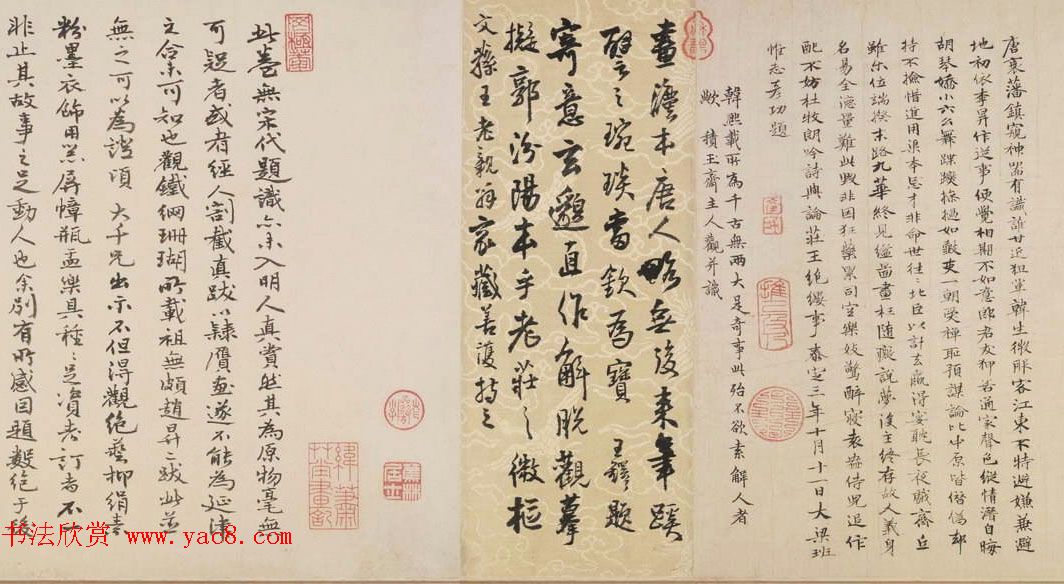 唐衰藩鎮窺神器有識誰甘近狙輩韓生微服客江東不特避嫌兼避
地初依李昪作逆事便覺相期不如意郎君友狎若通家聲色縱情潛自晦
胡琴嬌小六幺舞蹀躞摻撾如鼓吏一朝受禪耶預謀論比中原皆僭偽却
持不撿惜進用渠本忠才非命世往往北臣以計去贏得宴眠長夜戲齋丘
雖尔位端揆末路九華終見縊畵畫枉随癡說夢後主終存故人義身
名易全德量難此興非因狂藥累司空樂妓驚醉寢袁盎侍兒追作
配不妨杜牧朗吟詩與論莊王絕纓事 泰定三年十月十一日大梁班
惟志彥功題
韓熙載所為千古無兩大是奇事此殆不欲索解人者
歟 積玉齋主人觀并識
畫灋本唐人略無後來筆蹊
譬之琬琰當欽為寶 王鐸題
寄意玄邈直作解脫觀摹
擬郭汾陽本乎老莊之微樞
文孫王老親翁家藏善護持之
此卷無宋代題識亦未入明人真賞然其為原物毫無
可疑者或者經人割截真跋以隸贋畫遂不能為延津
之合未可知也觀鐵網珊瑚所載祖無頗趙昇二跋此並
無之可以為證頃 大千兄出示不但得觀絕藝抑絹素
粉墨衣飾用器屏幛瓶盂樂具種種足資考訂者不尠
非止其故事之足動人也余別有所感因題數絕于後
书法欣赏 www.yac8.com